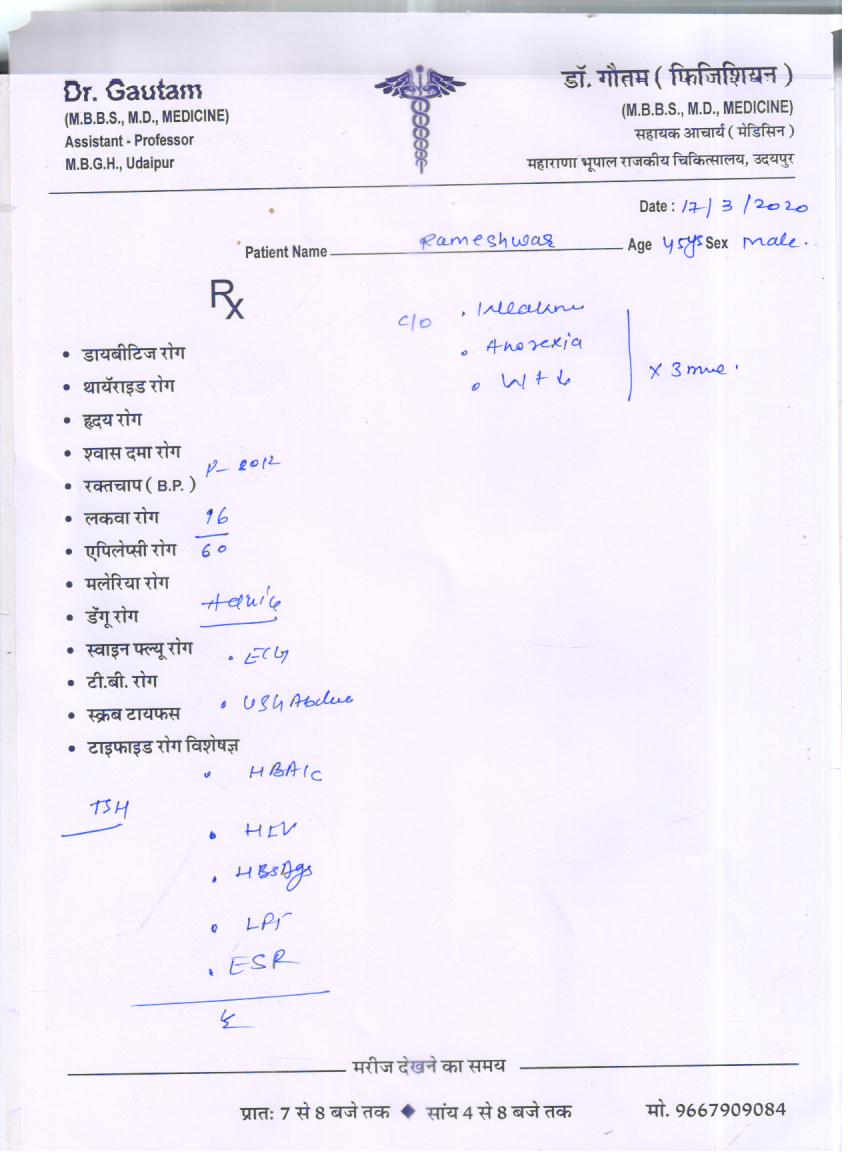 Dr. Gautam
(M.B.B.S., M.D., MEDICINE)
Assistant - Professor
M.B.G.H., Udaipur
डॉ. गौतम ( फिजिशियन )
(M.B.B.S., M.D., MEDICINE)
सहायक आचार्य ( मेडिसिन )
महाराणा भूपाल राजकीय चिकित्सालय, उदयपुर
Date : 17/3/2020
Patient Name Rameshwar Age 45ys Sex Male
Rx
C/O
• Anorexia
• Wt ↓
x 3
• डायबीटिज रोग
• थायॅराइड रोग
• हृदय रोग
• श्वास दमा रोग
• रक्तचाप ( B.P. )
• लकवा रोग
• एपिलेप्सी रोग
• मलेरिया रोग
• डेंगू रोग
• स्वाइन फ्ल्यू रोग
• टी.बी. रोग
• स्क्रब टायफस
• टाइफाइड रोग विशेषज्ञ
96
60
Advice
• ECG
• USG
• HBA1C
TSH
• HIV
• HBsAg
• LFT
• ESR
मरीज देखने का समय
प्रातः 7 से 8 बजे तक ◆ सांय 4 से 8 बजे तक मो. 9667909084